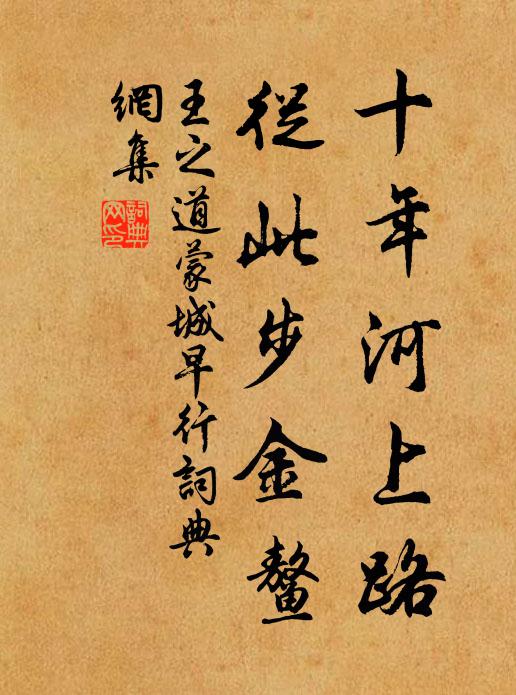 十年河上路
從此步金鰲
王之道蒙城早行詞典
網集
詞典
网印